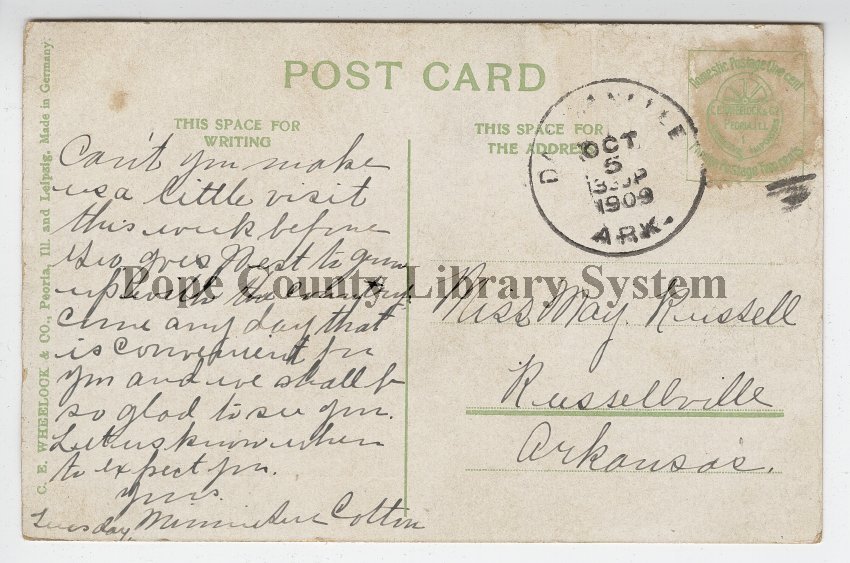 POST CARD
THIS SPACE FOR
WRITING
THIS SPACE FOR
THE ADDRESS
C. E. WHEELOCK & CO., Peoria, Ill. and Leipzig. Made in Germany.
Domestic Postage One cent
C.E. WHEELOCK & Co
PEORIA ILL
Foreign Postage Two cents
OCT
5
1909
ARK.
Can't you make
us a little visit
this week before
Geo goes West to grow
up with the country.
Come any day that
is convenient for
you and we shall b
so glad to see you.
Let us know when
to expect you.
Yours.
Minnie Cotton
Tuesday
Miss May Russell
Russellville
Arkansas.
Pope County Library System